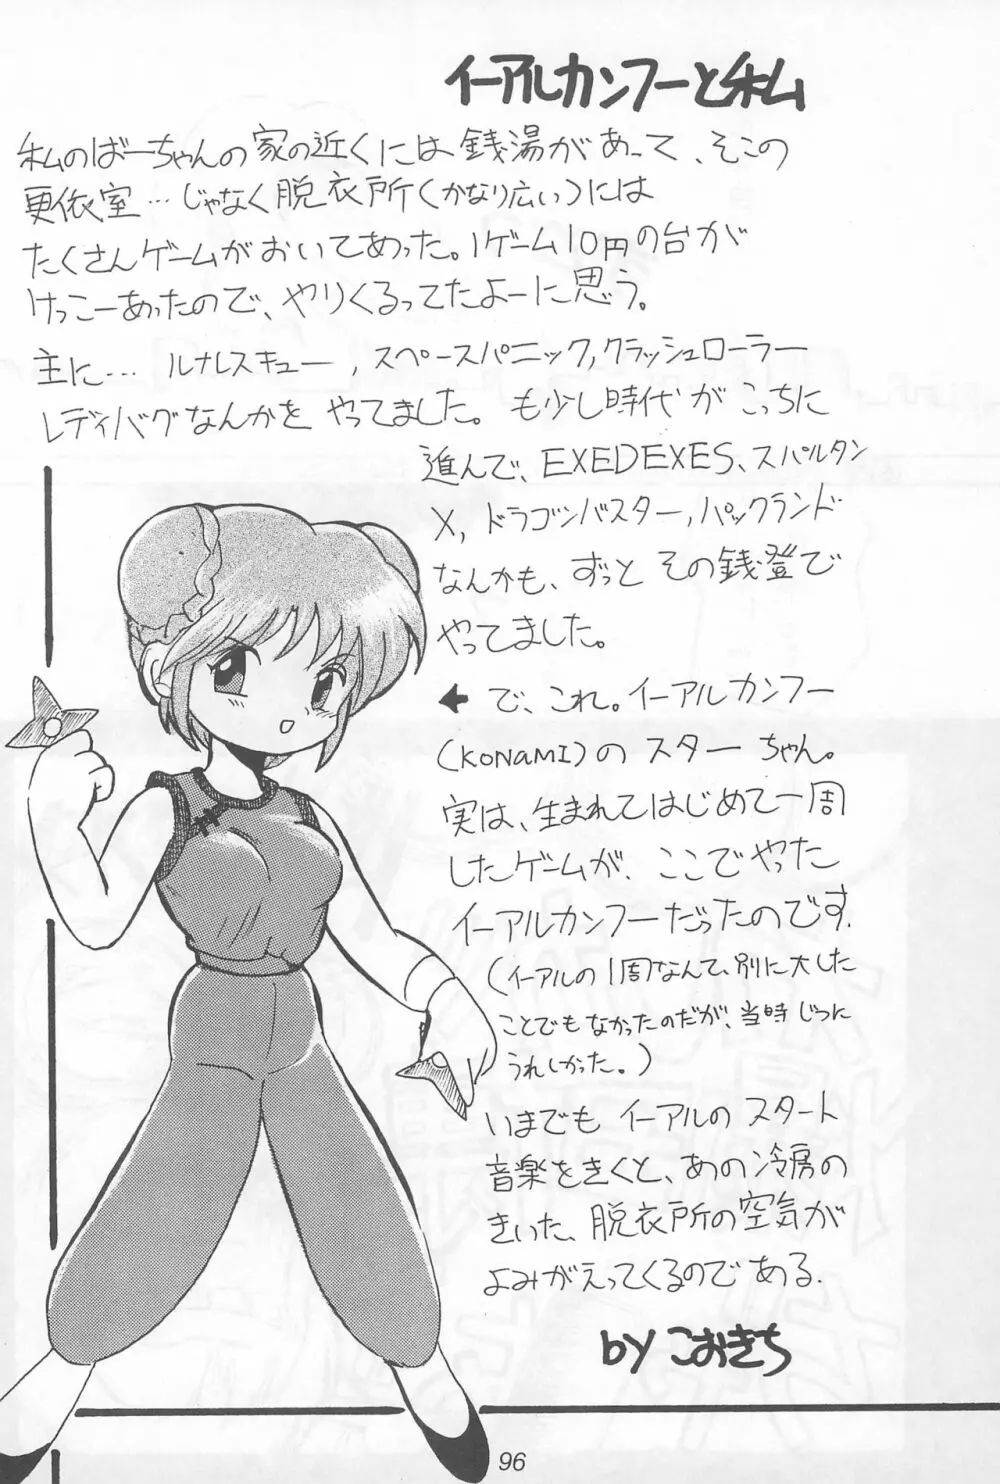 イーアルカンフーと私
私のばーちゃんの家の近くには銭湯があって、そこの
更依室…じゃなく脱衣所(かなり広い)には
たくさんゲームがおいてあった。1ゲーム10円の台が
けっこーあったので、やりくるってたよーに思う。
主に… ルナレスキュー,スペースパニック,クラッシュローラー
レディバグなんかを やってました。も少し時代がこっちに
進んで、EXEDEXES、スパルタン
X,ドラゴンバスター,パックランド
なんかも、ずっと その銭登で
やってました。
← で、これ。イーアルカンフー
(KONAMI)の スターちゃん。
実は、生まれてはじめて一周
したゲームが、ここでやった
イーアルカンフーだったのです.
(イーアルの1周なんて、別に大した
ことでもなかったのだが、当時じつに
うれしかった。)
いまでも イーアルの スタート
音楽をきくと、あの冷房の
きいた、脱衣所の空気が
よみがえってくるのである.
by こおきち
96